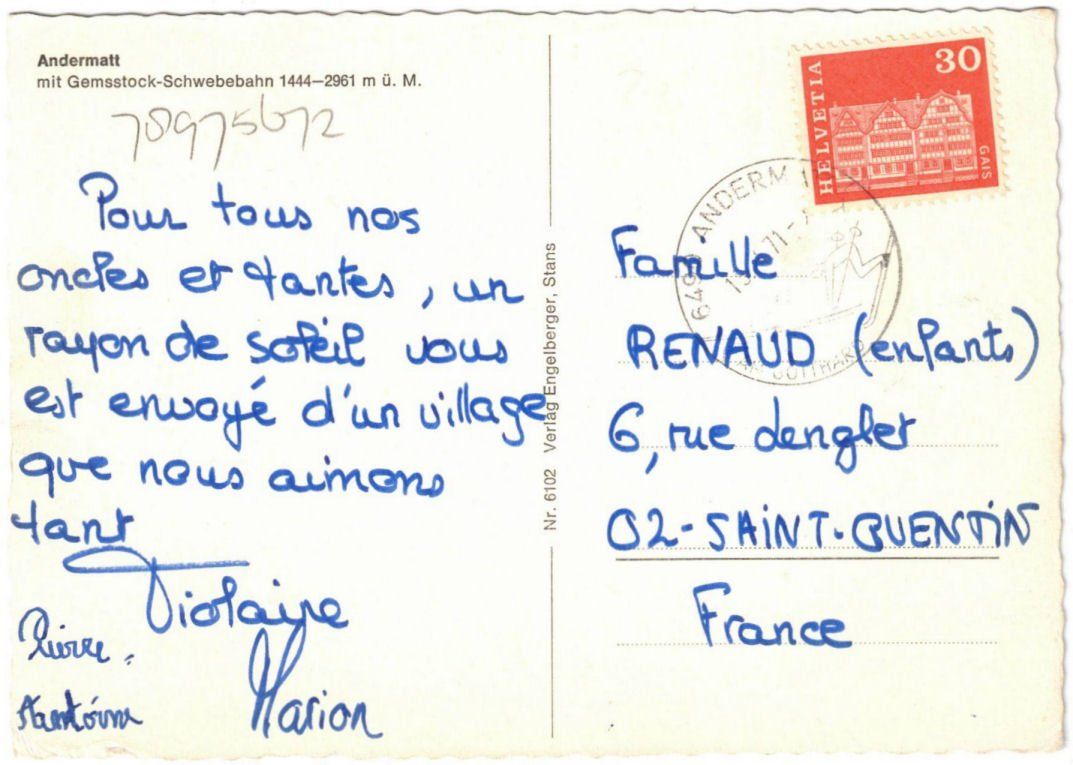 Andermatt
mit Gemsstock-Schwebebahn 1444—2961 m ü. M.
78975672
Pour tous nos
oncles et tantes, un
rayon de soleil vous
est envoyé d'un village
que nous aimons
tant
Violaine
Pierre.
Marion
Nr. 6102 Verlag Engelberger, Stans
HELVETIA
30
GAIS
6490 ANDERM
AM GOTTHARD
Famille
RENAUD (enfants)
6, rue denglet
02-SAINT-QUENTIN
France